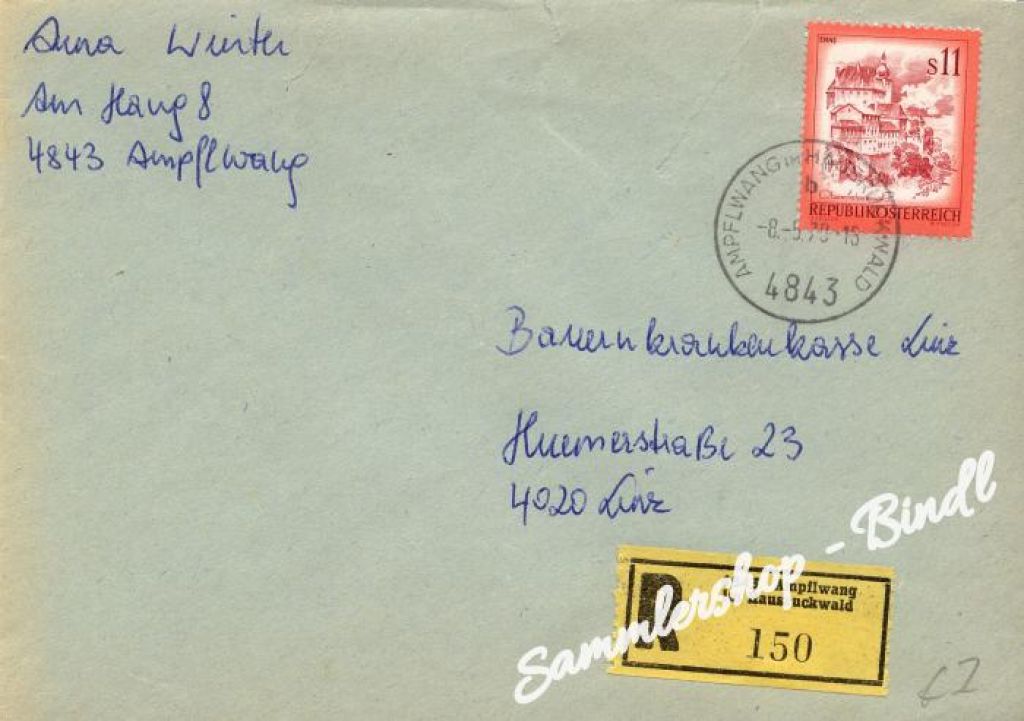 Anna Wurth
Am Hang 8
4843 Ampflwang
ENNS
S11
REPUBLIK ÖSTERREICH
AMPFLWANG im HAUSRUCKWALD
b
-8.-5.78-15
4843
Bauernkrankenkasse Linz
Huemerstraße 23
4020 Linz
R
Ampflwang
Hausruckwald
150
Sammlershop - Bindl